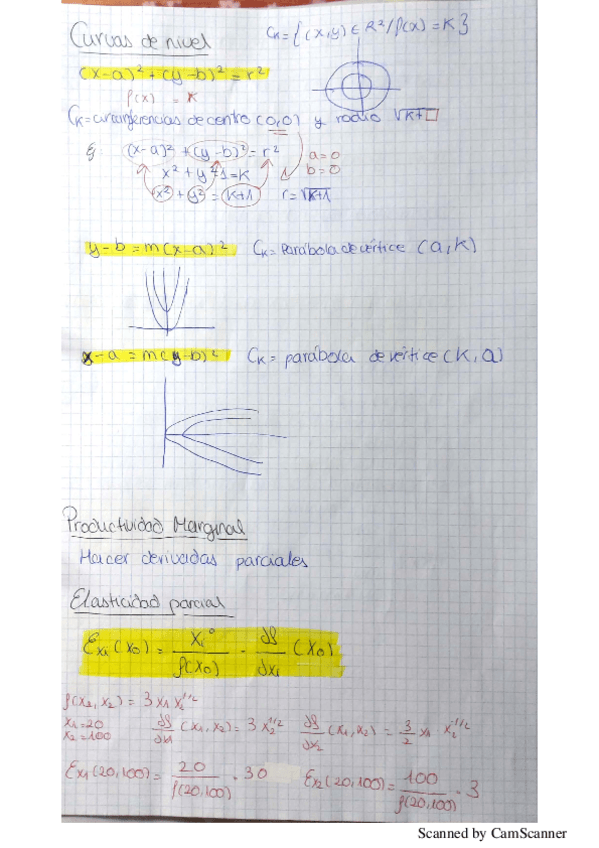 Curvas de nivel
Cₖ={(x,y) ∈ R²/f(x) = K}
(x-a)² + (y-b)² = r²
f(x) = K
Cₖ=circunferencias de centro (0,0) y radio √K+□
(x-a)² + (y-b)² = r²
a=0
b=0
x² + y²-1=K
x² + y² = K+1
r=√K+1
y-b = m(x-a)² Cₖ= Parábola de vértice (a,K)
x-a = m(y-b)² Cₖ= parábola de vértice (K,a)
Productividad Marginal
Hacer derivadas parciales
Elasticidad parcial
Exᵢ(x₀) = xᵢ°/f(x₀) · ∂f/∂xᵢ (x₀)
f(x₁,x₂) = 3 x₁ x₂^1/2
x₁=20
x₂=100
∂f/∂x₁ (x₁,x₂) = 3 x₂^1/2
∂f/∂x₂ (x₁,x₂) = 3/2 x₁ x₂^-1/2
Ex₁(20,100) = 20/f(20,100) · 30
Ex₂(20,100) = 100/f(20,100) · 3
Scanned by CamScanner